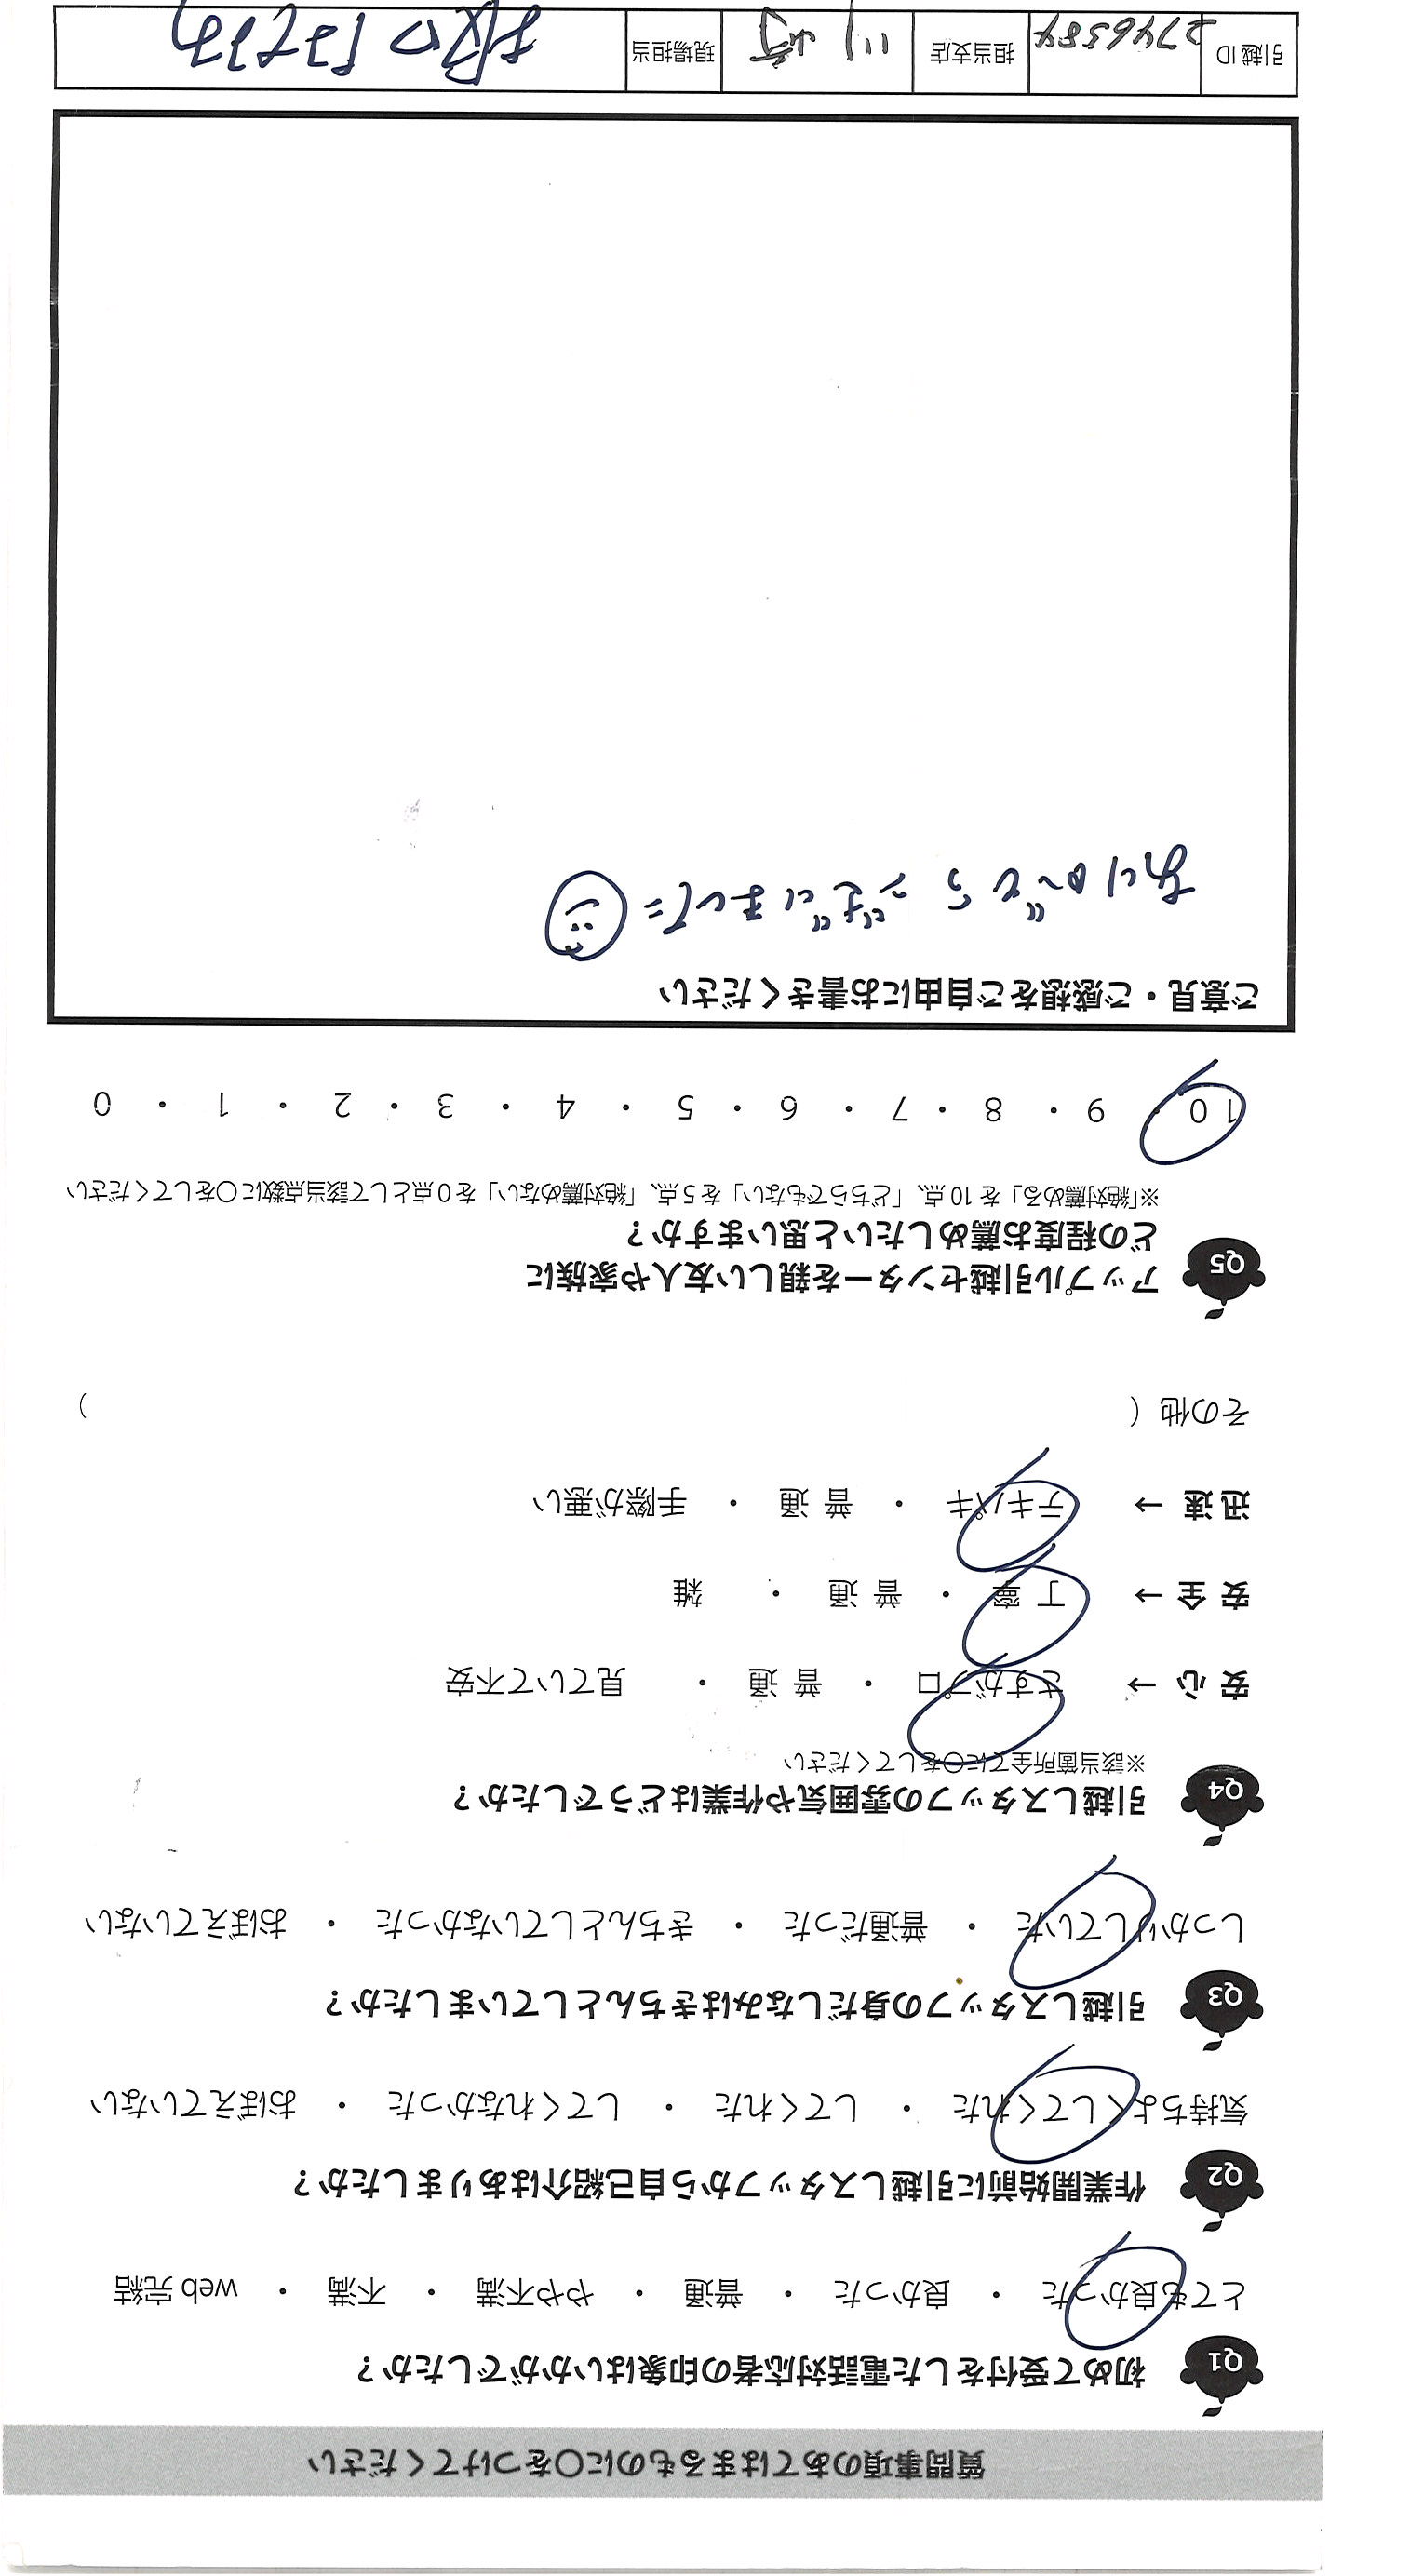 質問事項のあてはまるものに〇をつけてください
Q1 初めて受付をした電話対応者の印象はいかがでしたか?
とても良かった ・ 良かった ・ 普通 ・ やや不満 ・ 不満 ・ web完結
Q2 作業開始前に引越しスタッフから自己紹介はありましたか?
気持ちよくしてくれた ・ してくれた ・ してくれなかった ・ おぼえていない
Q3 引越しスタッフの身だしなみはきちんとしていましたか?
しっかりしていた ・ 普通だった ・ きちんとしていなかった ・ おぼえていない
Q4 引越しスタッフの雰囲気や作業はどうでしたか?
※該当箇所全てに〇をしてください
安心 → さすがプロ ・ 普通 ・ 見ていて不安
安全 → 丁寧 ・ 普通 ・ 雑
迅速 → テキパキ ・ 普通 ・ 手際が悪い
その他 ( )
Q5 アップル引越センターを親しい友人や家族に
どの程度お薦めしたいと思いますか?
※「絶対薦める」を10点、「どちらでもない」を5点、「絶対薦めない」を0点として該当点数に〇をしてください
10 ・ 9 ・ 8 ・ 7 ・ 6 ・ 5 ・ 4 ・ 3 ・ 2 ・ 1 ・ 0
ご意見・ご感想をご自由にお書きください
ありがとうございました
引越ID 2746584 担当支店 川崎 現場担当